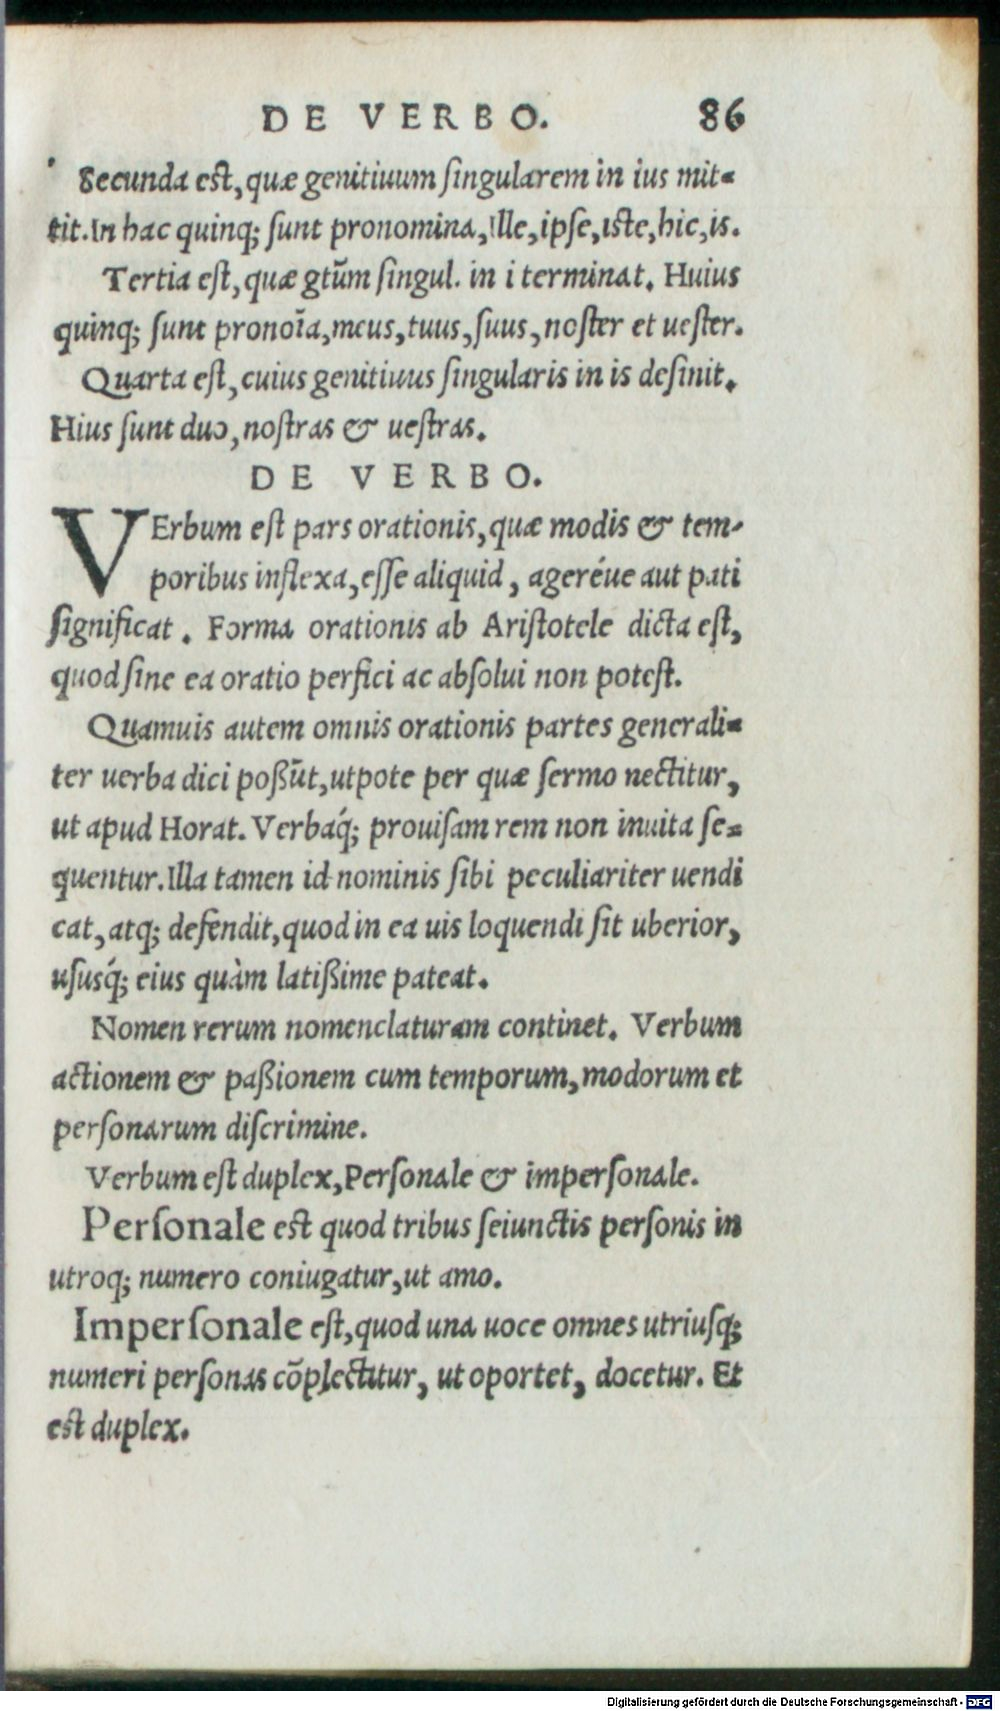 DE VERBO. 86
Secunda est, quæ genitiuum singularem in ius mit-
tit. In hac quinq; sunt pronomina, Ille, ipse, iste, hic, is.
Tertia est, quæ gtũm singul. in i terminat. Huius
quinq; sunt pronoĩa, meus, tuus, suus, noster et uester.
Quarta est, cuius genitiuus singularis in is desinit.
Hius sunt duo, nostras & uestras.
DE VERBO.
VErbum est pars orationis, quæ modis & tem-
poribus inflexa, esse aliquid, ageréue aut pati
significat. Forma orationis ab Aristotele dicta est,
quod sine ea oratio perfici ac absolui non potest.
Quamuis autem omnis orationis partes generali-
ter uerba dici poßũt, utpote per quæ sermo nectitur,
ut apud Horat. Verbaq́; prouisam rem non inuita se-
quentur. Illa tamen id nominis sibi peculiariter uendi
cat, atq; defendit, quod in ea uis loquendi sit uberior,
ususq́; eius quàm latißime pateat.
Nomen rerum nomenclaturam continet. Verbum
actionem & paßionem cum temporum, modorum et
personarum discrimine.
Verbum est duplex, Personale & impersonale.
Personale est quod tribus seiunctis personis in
utroq; numero coniugatur, ut amo.
Impersonale est, quod una uoce omnes utriusq;
numeri personas cõplectitur, ut oportet, docetur. Et
est duplex.
Digitalisierung gefördert durch die Deutsche Forschungsgemeinschaft - DFG